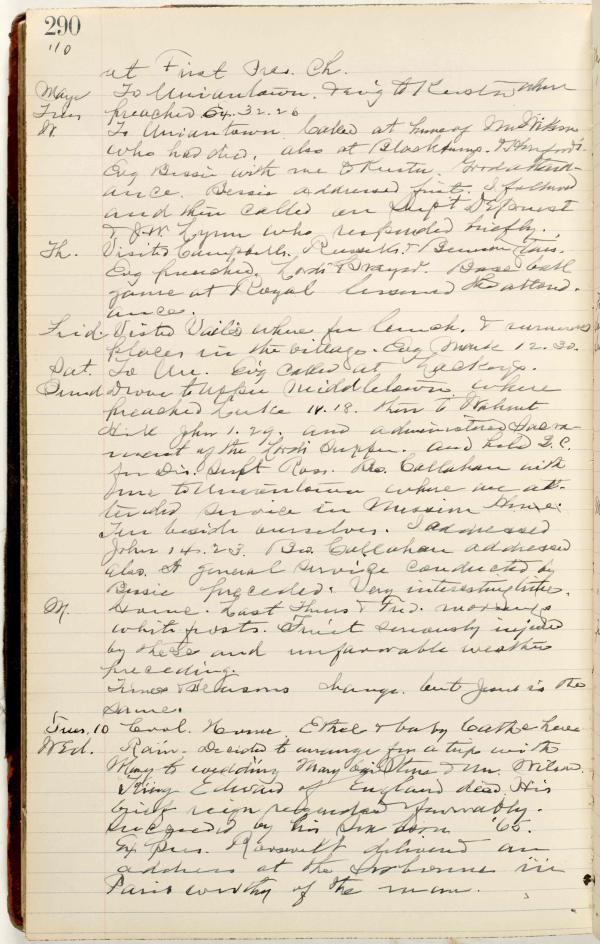 290
'10
at First Pres. Ch.
May To Uniontown. Evg to where
Tues preached 32.26
W. To Uniontown called at home of Mr
who had died, also at
Evg Bessie with me to Good attend-
ance. Bessie addressed first. I followed
and then called on Supt
& J.W. Lynn who responded briefly.
Th. Visited Campbells. &
Evg preached. Lord's Prayer. Base ball
game at Royal lessened the attend-
ance.
Frid. Visited where for lunch. & numerous
places in the village. Evg Mark 12.30.
Sat. To Un. Evg called at
Sund drove to Upper Middletown where
preached Luke 14.18. then to Walnut
Hill John 1.29. and administered Sacra-
ment of the Lord's Supper. and held Q.C.
for Dis. Supt Ross. Bro. Callahan with
me to Uniontown where we at-
tended service in Mission
Ten beside ourselves. I addressed
John 14.23. Bro. Callahan addressed
also. A general service conducted by
Bessie preceded. Very interesting
M. Home. Last Thurs & Frid. mornings
white frosts. Fruit seriously injured
by these and unfavorable weather
preceding.
Times & Seasons change, but Jesus is the
same.
Tues. 10 Cool. Home. Ethel & baby here
Wed. Rain. Decided to arrange for a trip with
May to wedding Mary & Mr. Wilson.
King Edward of England dead. His
brief reign regarded favorably.
Succeeded by his son born '65.
Ex Pres. Roosevelt delivered an
address at the Sorbonne in
Paris worthy of the man.